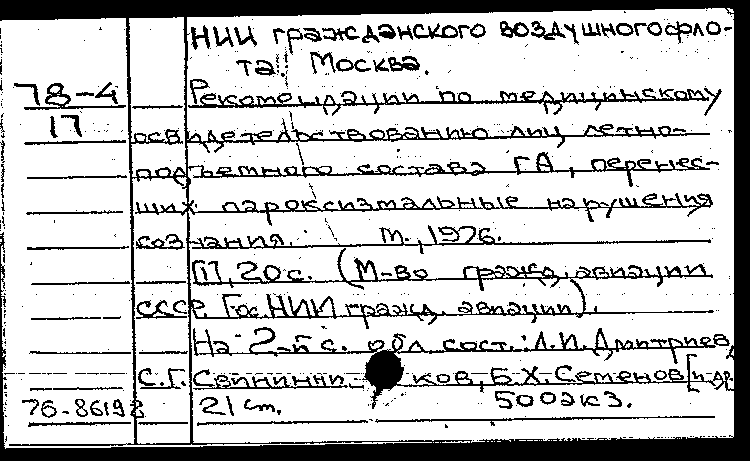 НИИ гражданского воздушногофло-
та. Москва.
78-4 Рекомендации по медицинскому
17 освидетельствованию лиц летно-
подъемного состава ГА, перенес-
ших пароксизмальные нарушения
сознания. М., 1976.
III, 20с. (М-во гражд. авиации
СССР. Гос.НИИ гражд. авиации).
На 2-й с. обл сост.: Л.И. Дмитриев,
С.Г. ков, Б.Х. Семенов [и др
76-86198 21 cm. 500экз.